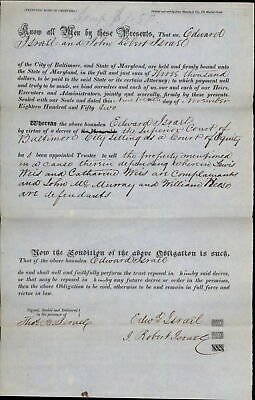 Know all Men by these Presents, That we Edward
Israel and John Robert Israel
of the City of Baltimore, and State of Maryland, are held and firmly bound unto
the State of Maryland, in the full and just sum of Three thousand
dollars, to be paid to the said State or its certain Attorney, to which payment well
and truly to be made, we bind ourselves, and each of us, our and each of our Heirs,
Executors and Administrators, jointly and severally, firmly by these presents.
Sealed with our Seals and dated this day of November
Eighteen Hundred and Fifty two
Whereas the above bounden Edward Israel
by virtue of a decree of the Superior Court of
Baltimore City Sitting as a Court of Equity
has been appointed Trustee to sell the property mentioned
in a cause therein depending wherein Lewis
Weis and Catharine Weis are Complainants
and John McMurray and William
are defendants
Now the Condition of the above Obligation is such,
That if the above bounden Edward Israel
do and shall well and faithfully perform the trust reposed in him by said decree,
or that may be reposed in him by any future decree or order in the premises,
then the above Obligation to be void, otherwise to be and remain in full force and
virtue in law.
Signed, Sealed and Delivered
in the presence of
Israel
Edwd Israel
J Robert Israel